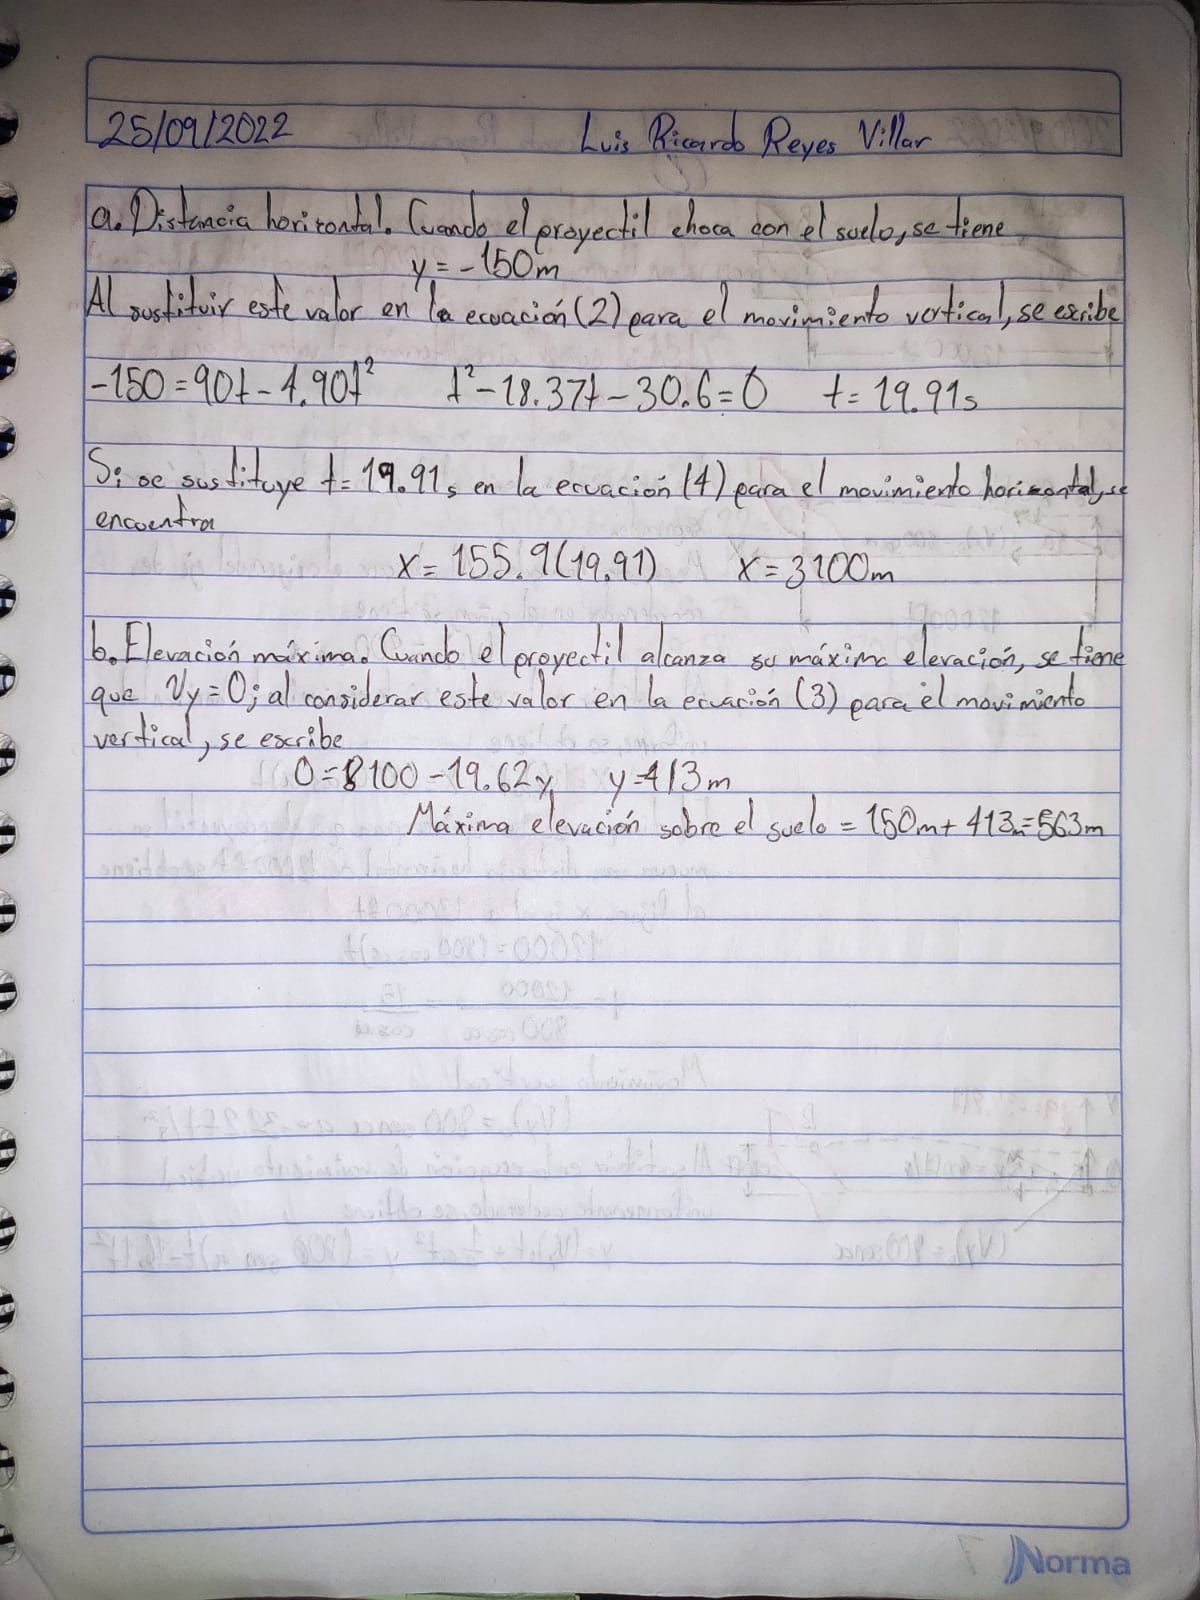 25/09/2022 Luis Ricardo Reyes Villar
a. Distancia horizontal. Cuando el proyectil choca con el suelo, se tiene
y = -150m
Al sustituir este valor en la ecuación (2) para el movimiento vertical, se escribe
-150 = 90t - 4.90t² t² - 18.37t - 30.6 = 0 t = 19.91s
Si se sustituye t = 19.91s en la ecuación (4) para el movimiento horizontal, se
encuentra
x = 155.9(19.91) x = 3100m
b. Elevación máxima. Cuando el proyectil alcanza su máxima elevación, se tiene
que Vy = 0; al considerar este valor en la ecuación (3) para el movimiento
vertical, se escribe
0 = 8100 - 19.62y y = 413m
Máxima elevación sobre el suelo = 150m + 413m = 563m
Norma